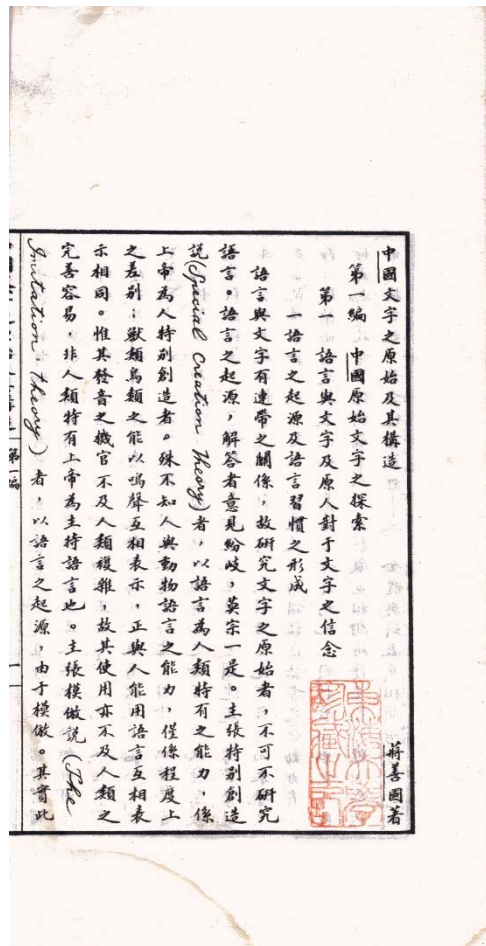 中國文字之原始及其構造
蔣善國著
第一編　中國原始文字之探索
第一　語言與文字及原人對于文字之信念
一語言之起源及語言習慣之形成
語言與文字有連帶之關係，故研究文字之原始者，不可不研究
語言。語言之起源，解答者意見紛歧，莫宗一是。主張特別創造
說(Special Creation Theory)者，以語言為人類特有之能力，係
上帝為人特別創造者。殊不知人與動物語言之能力，僅係程度上
之差別；獸類鳥類之能以鳴聲互相表示，正與人能用語言互相表
示相同。惟其發音之機官不及人類複雜，故其使用亦不及人類之
完善容易，非人類特有上帝為主持語言也。主張模倣說(The
Imitation Theory)者，以語言之起源，由于模倣。其實此
第一編
一